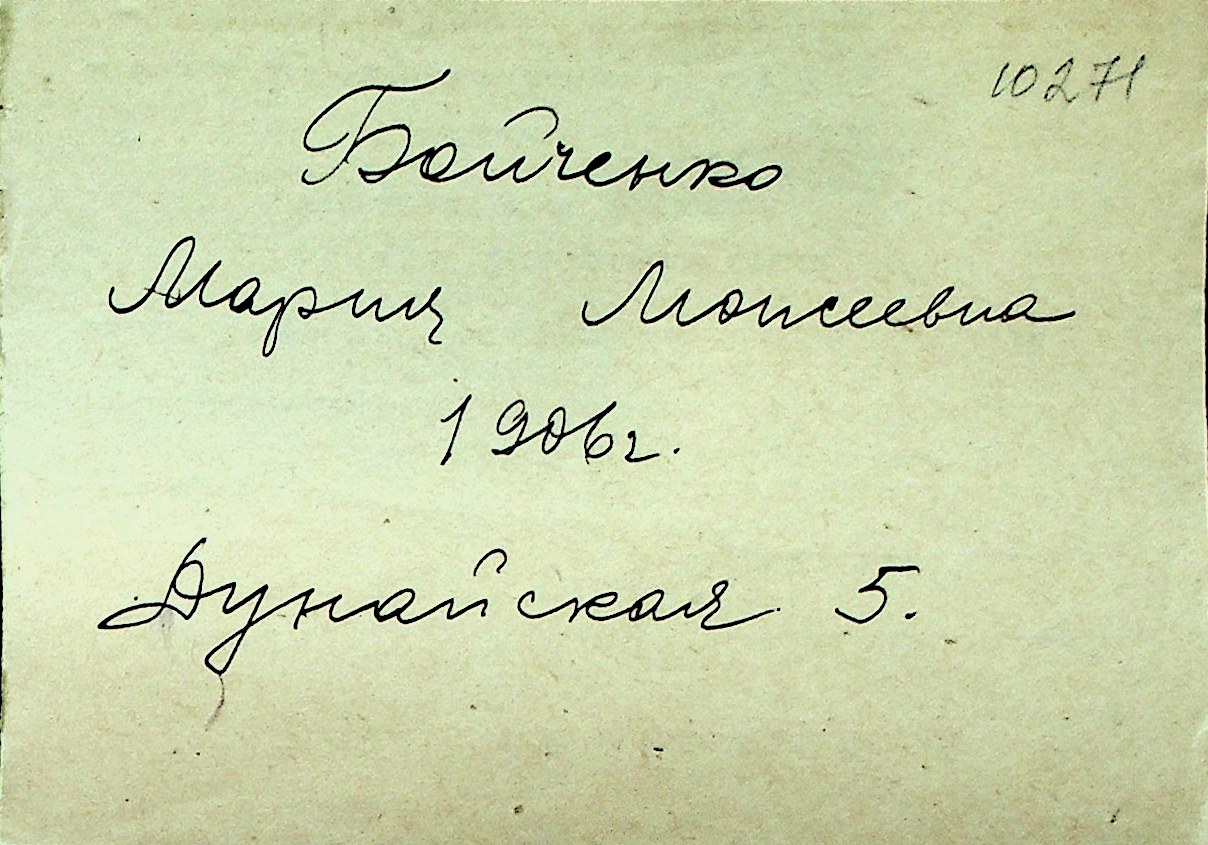 10271
Бойченко
Мария Моисеевна
1906г.
Дунайская 5.